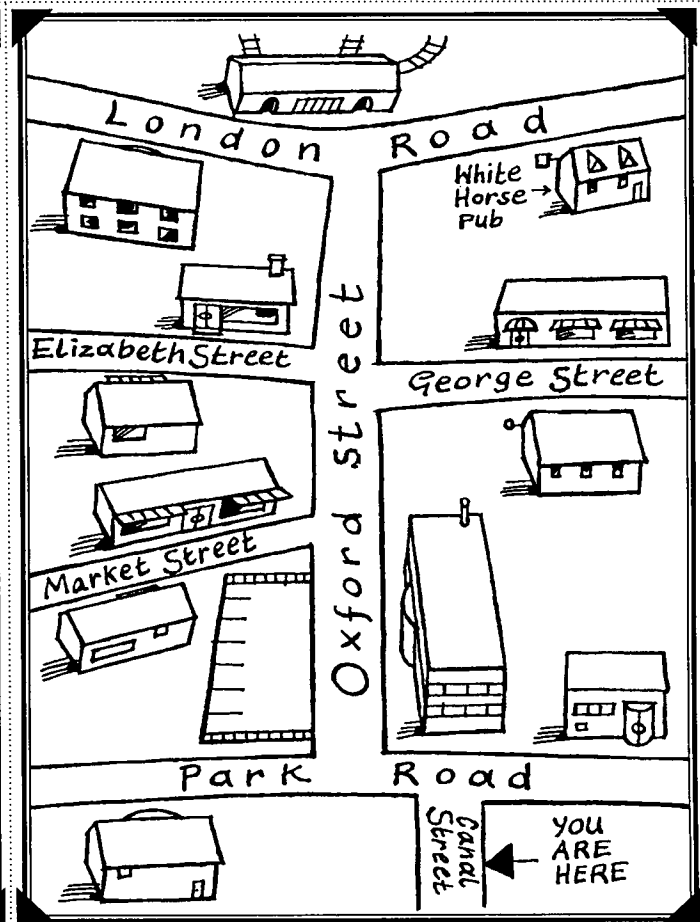 London Road
White
Horse
Pub
Elizabeth Street
George Street
Oxford street
Market Street
Park Road
Canal
Street
YOU
ARE
HERE